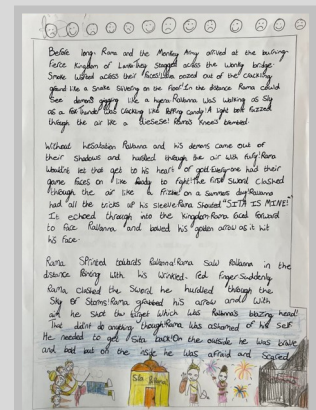 Before long, Rama and the Monkey Army arrived at the burning
Ferce Kingdom of Lanka They stagged across the wonky bridge.
Smoke wafted across their faces! Lava oozed out of the crackling
ground like a Snake Slivering on the floor! In the distance Rama could
See demons gigging like a hyena Ravanna was walking as Sly
as a fox thunder was Clacking like Popping Candy! A light bolt fizzed
through the air like a
Without hesatation Ravanna and his demons came out of
their Shadows and hurdled through the air with fury! Rama
wouldn't let that get to his heart of gold Everyone had their
game faces on like Ready to fight! The first Sword Clashed
through the air like a on a Summers day! Ravanna
had all the tricks up his Sleeve Rama Shouted "SITA IS MINE!"
It echoed through into the Kingdom. Rama faced forward
to face Ravanna, and his golden arrow as it hit
his face.
Rama SPrinted towards Ravanna! Rama Saw Ravanna in the
distance Pointing with his Wrinkled- red finger Suddenly
Rama clashed the Sword he hurdled through the
Sky of Storms! Rama grabbed his arrow and With
aim he Shot the target which was Ravanna's blazing head!
The didn't do anything though Rama was ashamed of his Self
He needed to get Sita back! On the outside he was brave
and bold but on the inside he was afraid and Scared